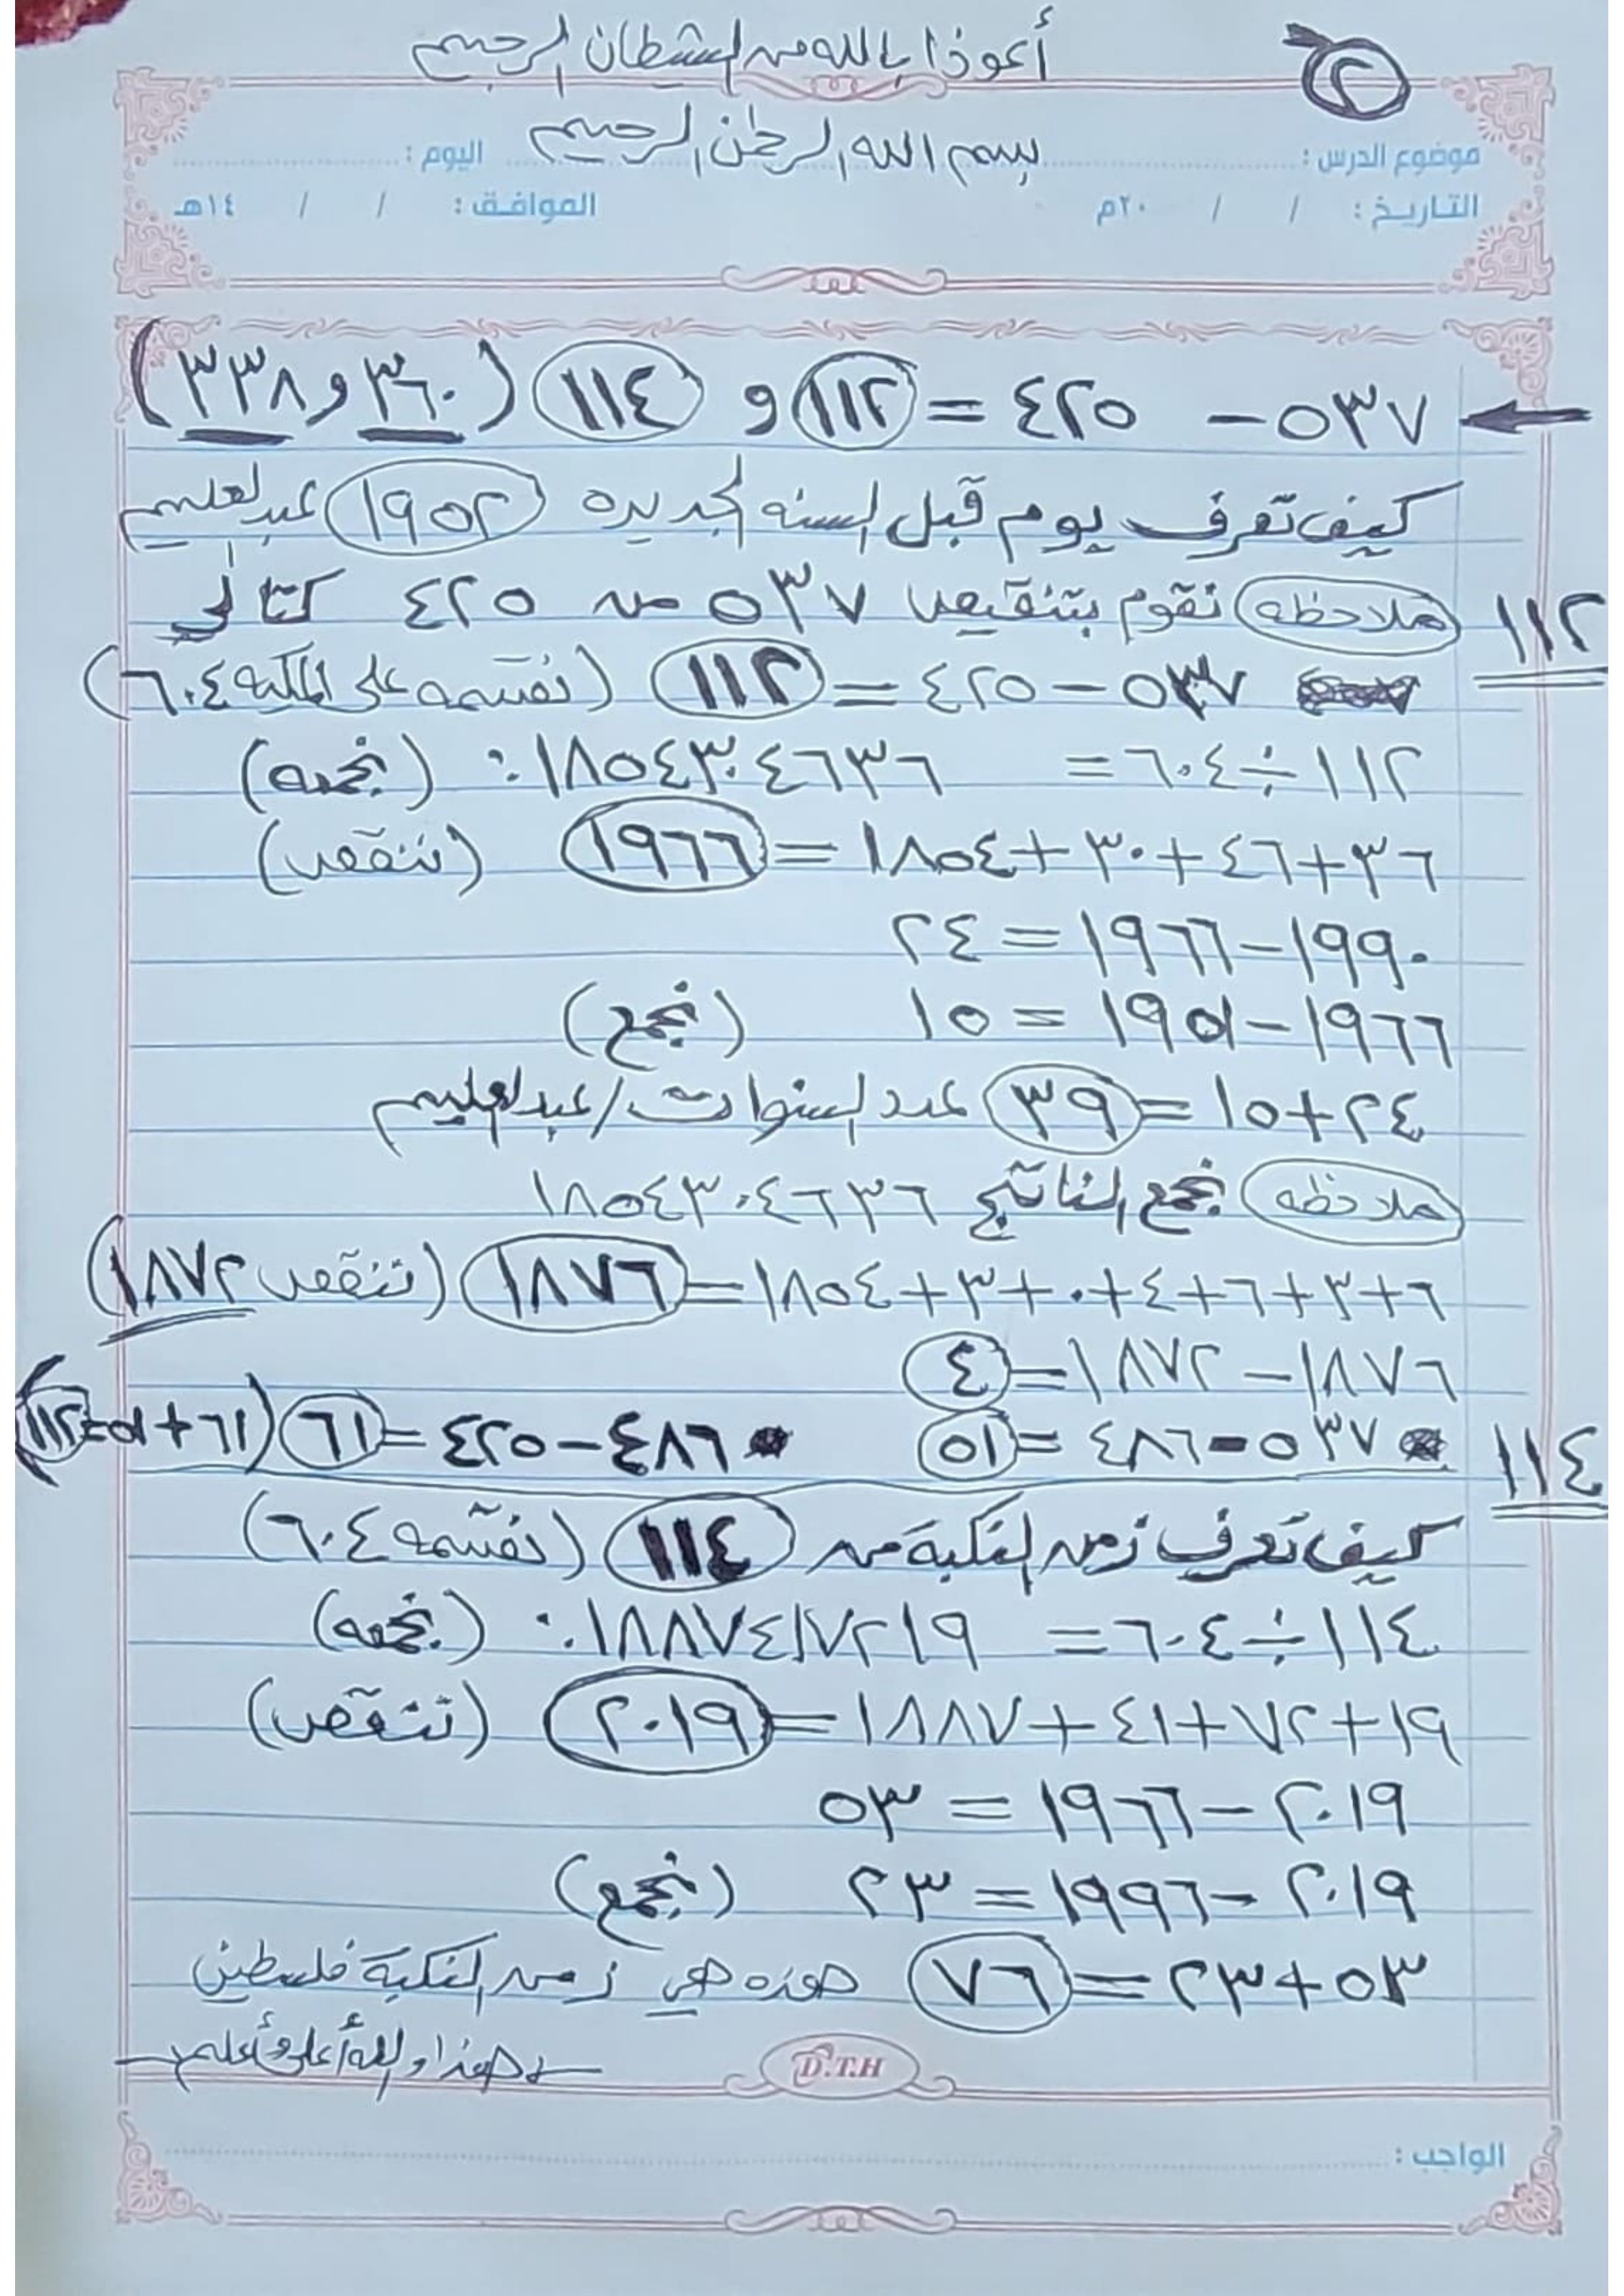 أعوذا بالله من الشطان الرجيم
٢
بسم الله الرحمن الرحيم
موضوع الدرس : اليوم :
التاريخ : / / ٢٠م الموافق : / / ١٤هـ
٥٣٧ – ٤٢٥ = ١١٢ و ١١٤ (٣٦٠ و ٣٣٨)
كيف تعرف يوم قبل السنه الجديده ١٩٥٢ عبدالعليم
١١٢ ملاحظه نقوم بتنقيص ٥٣٧ من ٤٢٥ كتالي
٥٣٧ – ٤٢٥ = ١١٢ (نقسمه على المكيه ٦٠٤)
١١٢ ÷ ٦٠٤ = ١٨٥٤٣٠٤٦٣٦. (نجمعه)
٣٦+٤٦+٣٠+١٨٥٤ = ١٩٦٦ (ننقص)
١٩٩٠–١٩٦٦ = ٢٤
١٩٦٦–١٩٥١ = ١٥ (نجمع)
٢٤+١٥=٣٩ عدد السنوات/عبدالعليم
ملاحظه نجمع الناتج ١٨٥٤٣٠٤٦٣٦
٦+٣+٦+٤+٠+٣+١٨٥٤=١٨٧٦ (ننقص ١٨٧٢)
١٨٧٦–١٨٧٢=٤
١١٤ * ٥٣٧–٤٨٦=٥١ * ٤٨٦–٤٢٥=٦١ (٦١+٥١=١١٢)
كيف تعرف زمن النكبة من ١١٤ (نقسمه ٦٠٤)
١١٤ ÷ ٦٠٤ = ١٨٨٧٤١٧٢١٩. (نجمعه)
١٩+٧٢+٤١+١٨٨٧=٢٠١٩ (ننقص)
٢٠١٩–١٩٦٦ = ٥٣
٢٠١٩–١٩٩٦ = ٢٣ (نجمع)
٥٣+٢٣=٧٦ هذه هي زمن النكبة فلسطين
هذا والله أعلى وأعلم
D.T.H
الواجب :